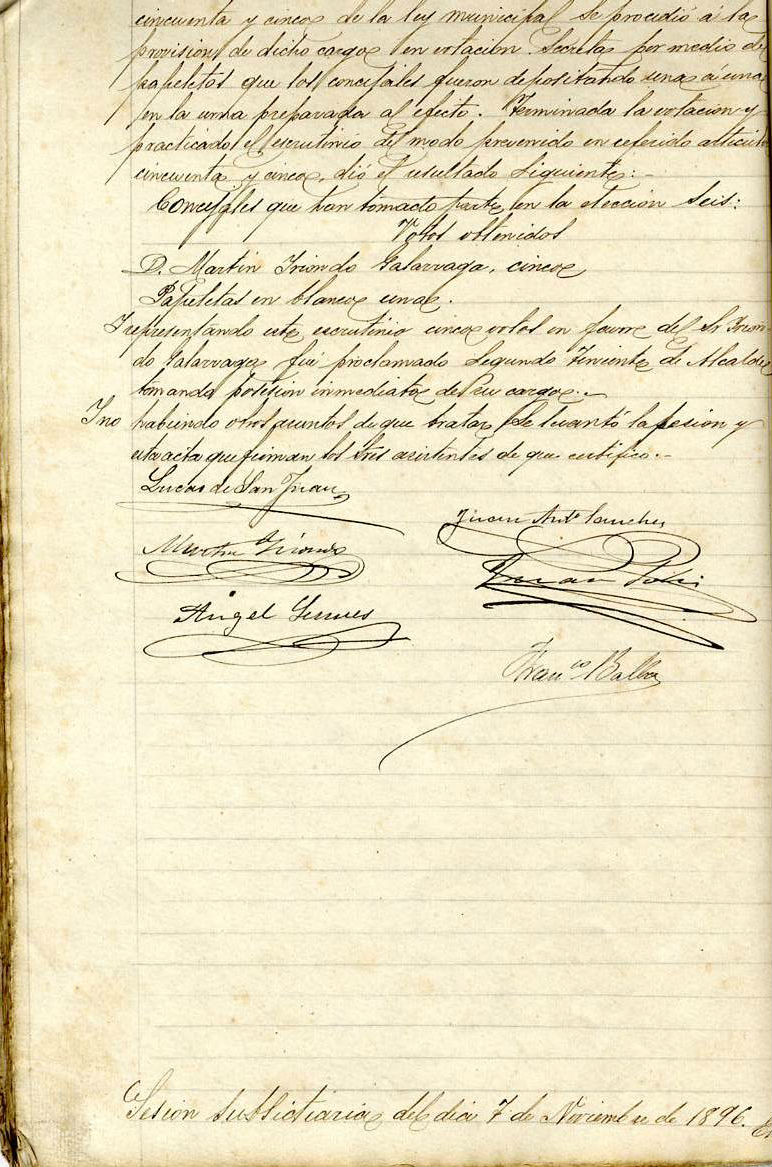 cincuenta y cinco de la ley municipal se procedió á la
provision de dicho cargo en votacion secreta por medio de
papeletas que los concejales fueron depositando una á una
en la urna preparada al efecto. Terminada la votacion y
practicado el escrutinio del modo prevenido en referido articulo
cincuenta y cinco, dió el resultado siguiente:
Concejales que han tomado parte en la eleccion seis:
Votos obtenidos
D. Martin Iriondo Galarraga, cinco
Papeletas en blanco una.
Y representando este escrutinio cinco votos en favor del Sr Irion-
do Galarraga fué proclamado Segundo Teniente de Alcalde
tomando posesion inmediata de su cargo.
Y no habiendo otros asuntos de que tratar se levantó la sesion y
esta acta que firman los Sres asistentes de que certifico.
Lucas de San Juan
Juan Antº Sanchez
Martin Iriondo
Juan
Angel
Franco Balba
Sesion subsidiaria del dia 7 de Noviembre de 1896.